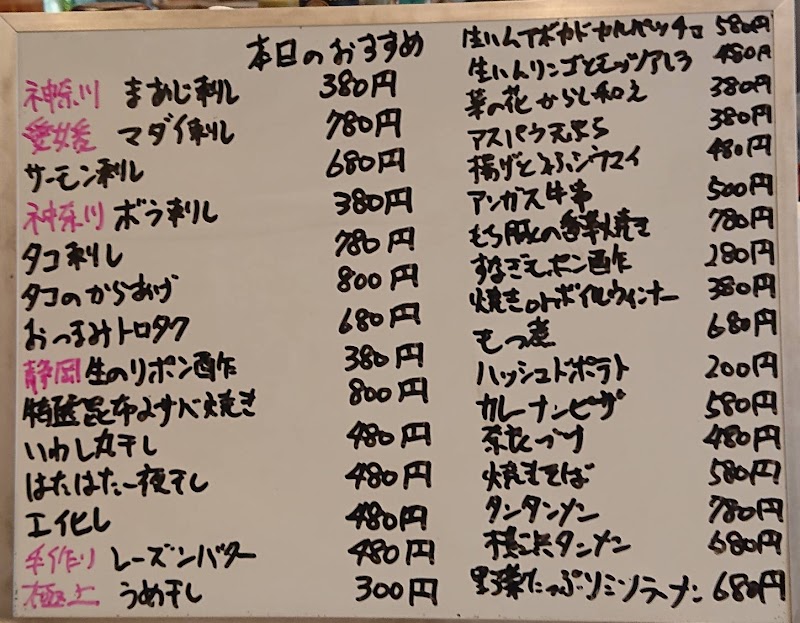 本日のおすすめ
神奈川 まあじ刺し 380円
愛媛 マダイ刺し 780円
サーモン刺し 680円
神奈川 ボラ刺し 380円
タコ刺し 780円
タコのからあげ 800円
おつまみトロタク 680円
静岡 生のりポン酢 380円
昆布 焼き 800円
いわし丸干し 480円
はたはた一夜干し 480円
エイヒレ 480円
手作り レーズンバター 480円
極上 うめ干し 300円
生ハムアボカドカルパッチョ 580円
生ハムリンゴとモッツアレラ 480円
菜の花からし和え 380円
アスパラ天ぷら 380円
揚げとうふジウマイ 480円
アンガス牛串 500円
もち豚の香草焼き 780円
すなぎもポン酢 280円
焼きorボイルウィンナー 380円
もつ煮 680円
ハッシュドポテト 200円
カレーナンピザ 580円
茶衣づけ 480円
焼きそば 580円
タンタンメン 780円
横浜タンメン 680円
野菜たっぷりミソラーメン 680円